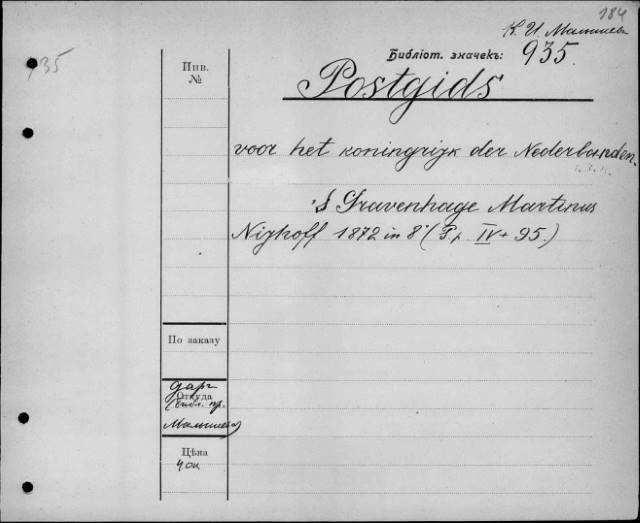 184
К. И. Малышев
935
Библіот. значекъ: 935.
Инв.
№
Postgids
voor het koningrijk der Nederlanden.
'S Gravenhage Martinus
Nijhoff 1872 in 8° (Pp. IV + 95.)
По заказу
даръ
Откуда
(библ. пр.
Малышева)
Цѣна
40к